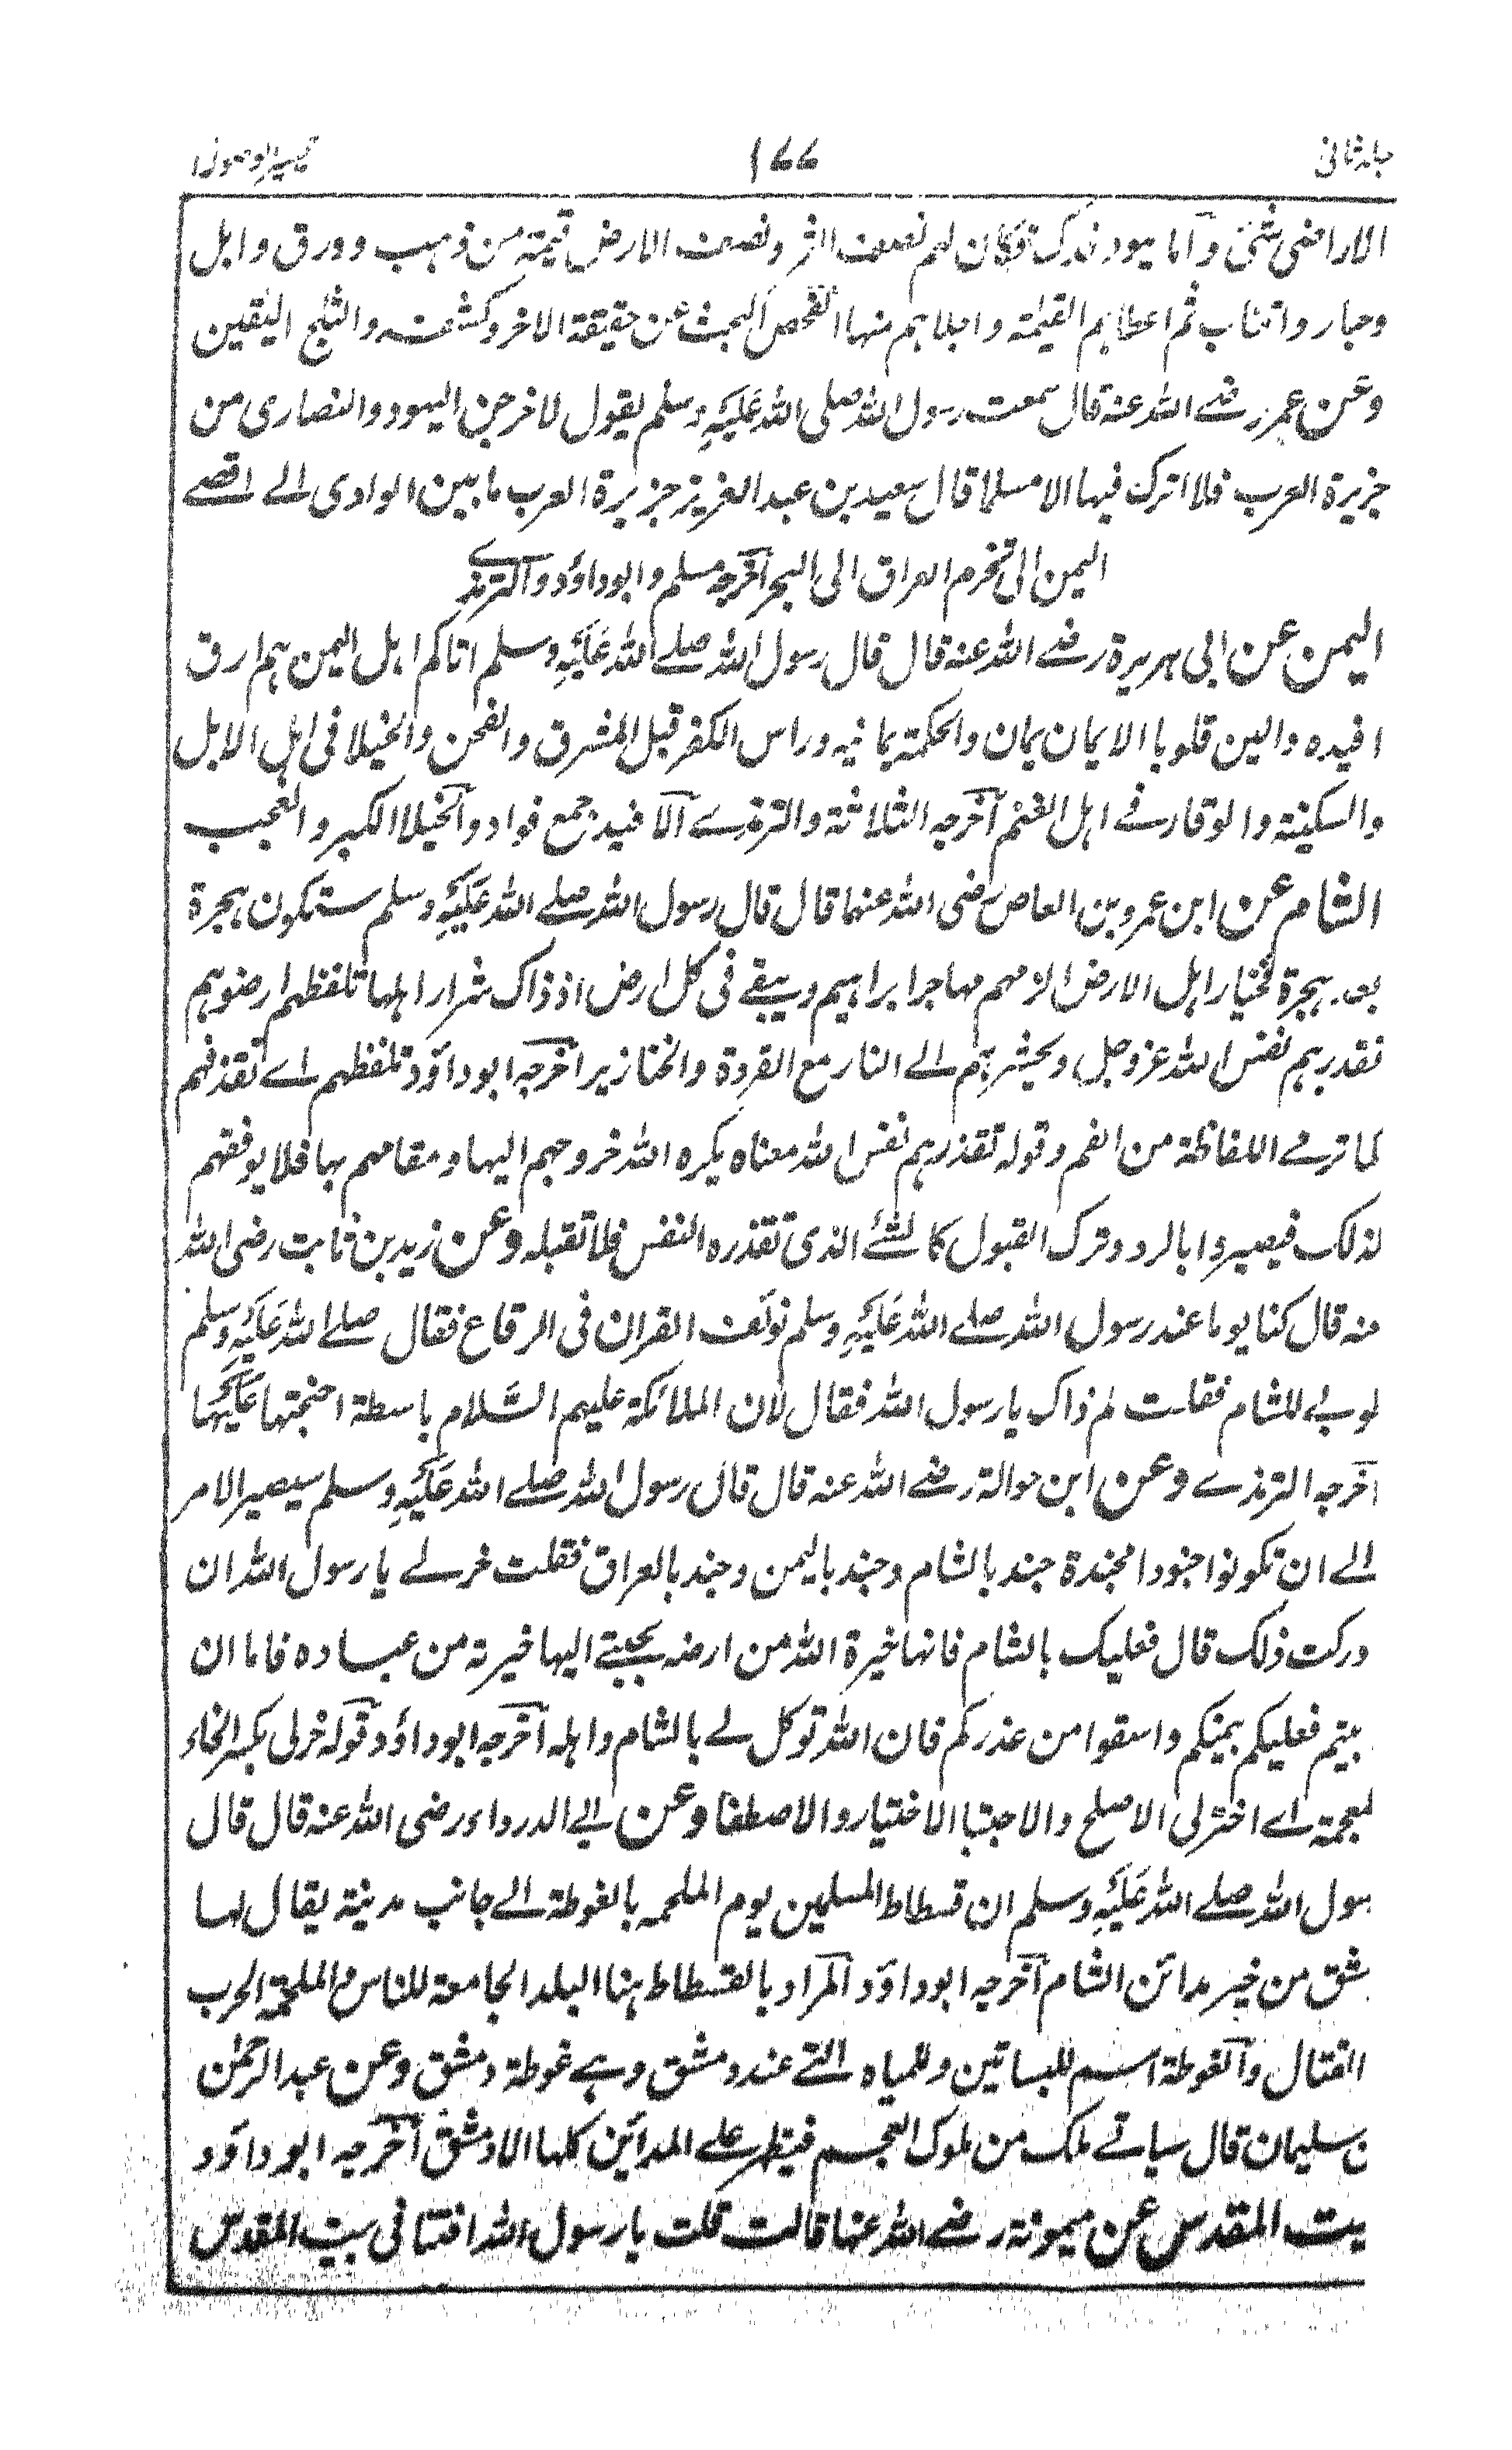 جلد ثانی ۱۷۷ تیسیر الوصول
الاراضی شئ وآما یہود فدک فکان لہم نصف الثمر ونصف الارض قیمتہ من ذہب وورق وابل
وحبار واقتاب ثم اعطاہم القیمة واجلاہم منہا الفحص البحث عن حقیقة الاخر وکشفہ والثلج الیقین
وعن عمر رضے اللہ عنہ قال سمعت رسول اللہ صلی اللہ عَلَیْہِ وسلم یقول لاخرجن الیہود والنصاری من
جزیرة العرب فلا اترک فیہا الا مسلما قال سعید بن عبد العزیز جزیرة العرب ما بین الوادی الے اقصے
الیمن الی تخوم العراق الی البحر آخرجہ مسلم وابوداؤد والترمذے
الیمن عن ابی ہریرة رضے اللہ عنہ قال قال رسول اللہ صلے اللہ عَلَیْہِ وسلم اتاکم اہل الیمن ہم ارق
افیدہ والین قلوبا الایمان یمان والحکمة یمانیہ وراس الکفر قبل المشرق والفخر والخیلا فی اہل الابل
والسکینة والوقار فے اہل الغنم آخرجہ الثلاثة والترمذے آلافید جمع فواد وآلخیلا الکبر والعجب
الشام عن ابن عمرو بن العاص رضی اللہ عنہما قال قال رسول اللہ صلے اللہ عَلَیْہِ وسلم ستکون ہجرة
بعد ہجرة فخیار اہل الارض الزمہم مہاجر ابراہیم ویبقے فی کل ارض اذ ذاک شرار اہلہا تلفظہم ارضوہم
تقذرہم نفس اللہ عزوجل ویحشرہم الے النار مع القردة والخنازیر اخرجہ ابوداؤد تلفظہم اے تقذفہم
کما ترمے اللفاظة من الفم وقولہ تقذرہم نفس اللہ معناہ یکرہ اللہ خروجہم الیہا ومقامہم بہا فلا یوفقہم
لذلک فیصیروا بالرد وترک القبول کالشئ الذی تقذرہ النفس فلا تقبلہ وعن زید بن ثابت رضی اللہ
عنہ قال کنا یوما عند رسول اللہ صلے اللہ عَلَیْہِ وسلم نؤلف القران فی الرقاع فقال صلے اللہ عَلَیْہِ وسلم
طوبے للشام فقلت لم ذاک یا رسول اللہ فقال لان الملائکة علیہم السَّلام باسطة اجنحتہا عَلَیْہا
آخرجہ الترمذے وعن ابن حوالة رضے اللہ عنہ قال قال رسول اللہ صلے اللہ عَلَیْہِ وسلم سیصیر الامر
الے ان تکونوا جنودا مجندة جند بالشام وجند بالیمن وجند بالعراق فقلت خرلے یا رسول اللہ ان
درکت ذلک قال فعلیک بالشام فانہا خیرة اللہ من ارضہ یجتبے الیہا خیرتہ من عبادہ فاما ان
بیتم فعلیکم بیمنکم واسقوا من غدرکم فان اللہ توکل لے بالشام واہلہ آخرجہ ابوداؤد وقولہ خرلی بکسر الخاء
لمعجمة اے اختر لی الاصلح والاجتبا الاختیار والاصطفا وعن ابے الدرداء رضی اللہ عنہ قال قال
سول اللہ صلے اللہ عَلَیْہِ وسلم ان فسطاط المسلمین یوم الملحمہ بالغوطة الے جانب مدینة یقال لہا
مشق من خیر مدائن الشام آخرجہ ابوداؤد آلمراد بالفسطاط ہنا البلد الجامعة للناس والملحمة الحرب
القتال وآلغوطة اسم للبساتین وللمیاہ التے عند دمشق وہے غوطة دمشق وعن عبد الرحمٰن
ن سلیمان قال سیاتے ملک من ملوک العجم فیظہر علے المدائن کلہا الا دمشق آخرجہ ابوداؤد
یت المقدس عن میمونة رضے اللہ عنہا قالت قلت یا رسول اللہ افتنا فی بیت المقدس